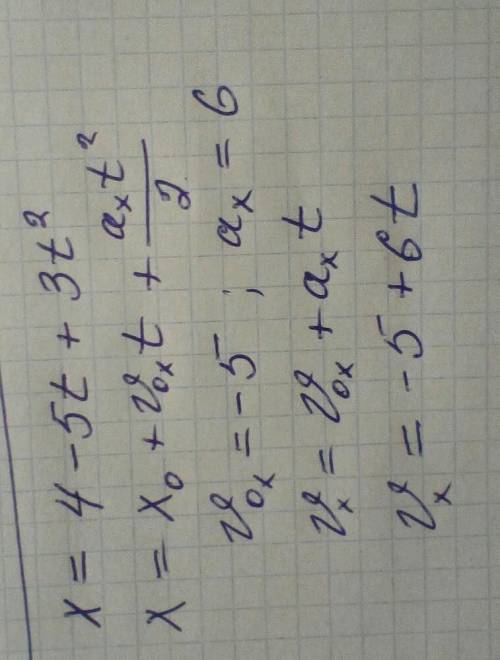 x = 4 - 5t + 3t²
x = x₀ + v₀ₓt + aₓt²/2
v₀ₓ = -5 ; aₓ = 6
vₓ = v₀ₓ + aₓt
vₓ = -5 + 6t